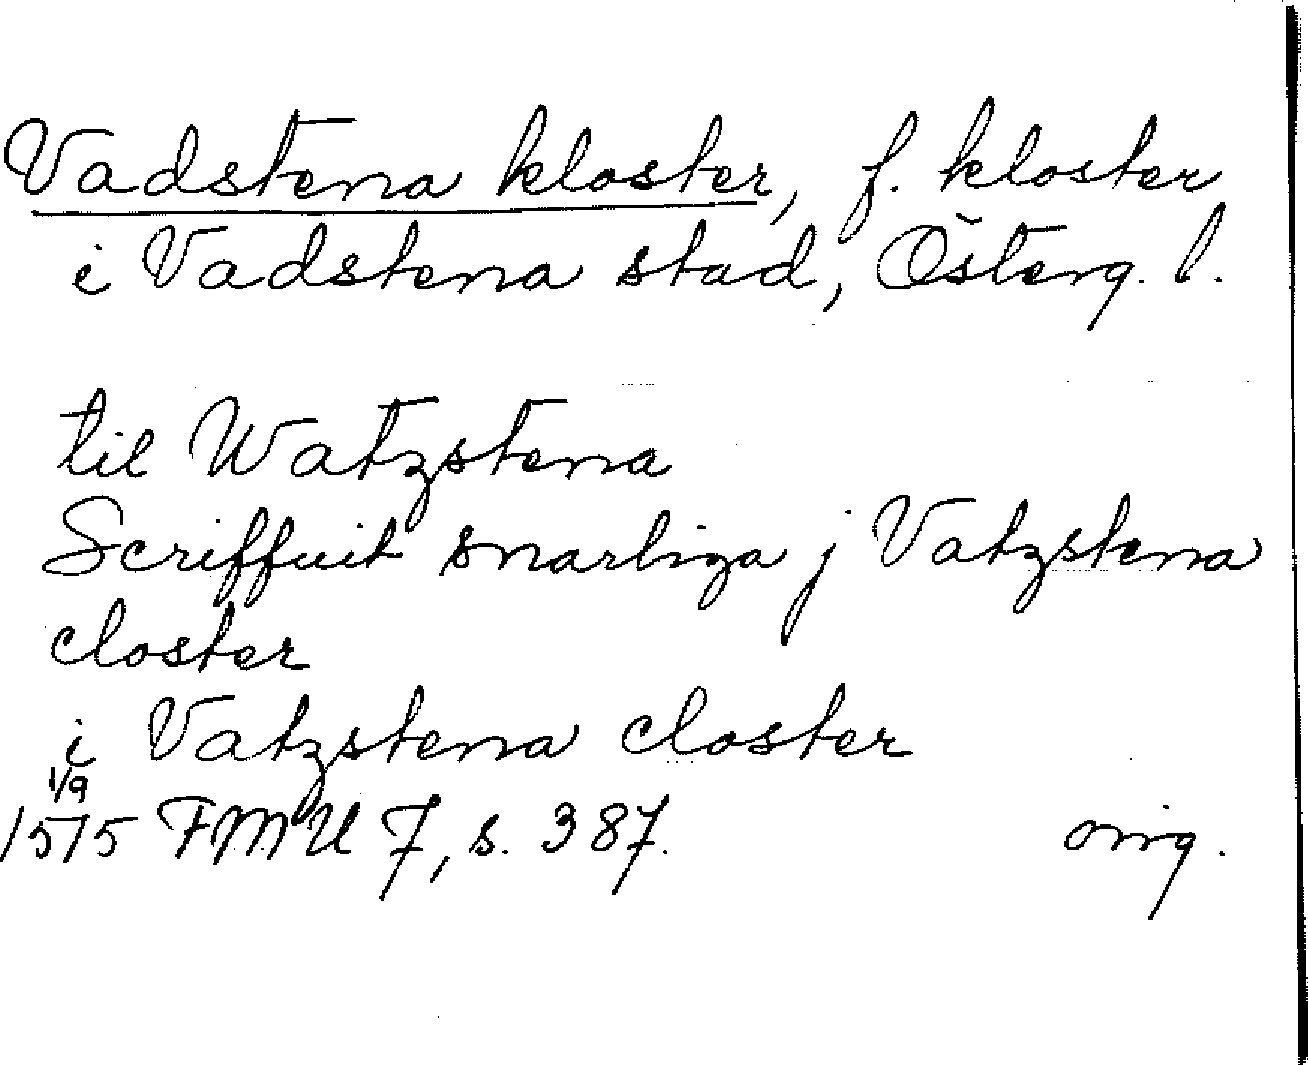 Vadstena kloster, f. kloster
i Vadstena stad, Österg. l.
til Watzstena
Scriffuit snarliga j Vatzstena
closter
i Vatzstena closter
1/9
1515 FMU 7, s. 387.
orig.